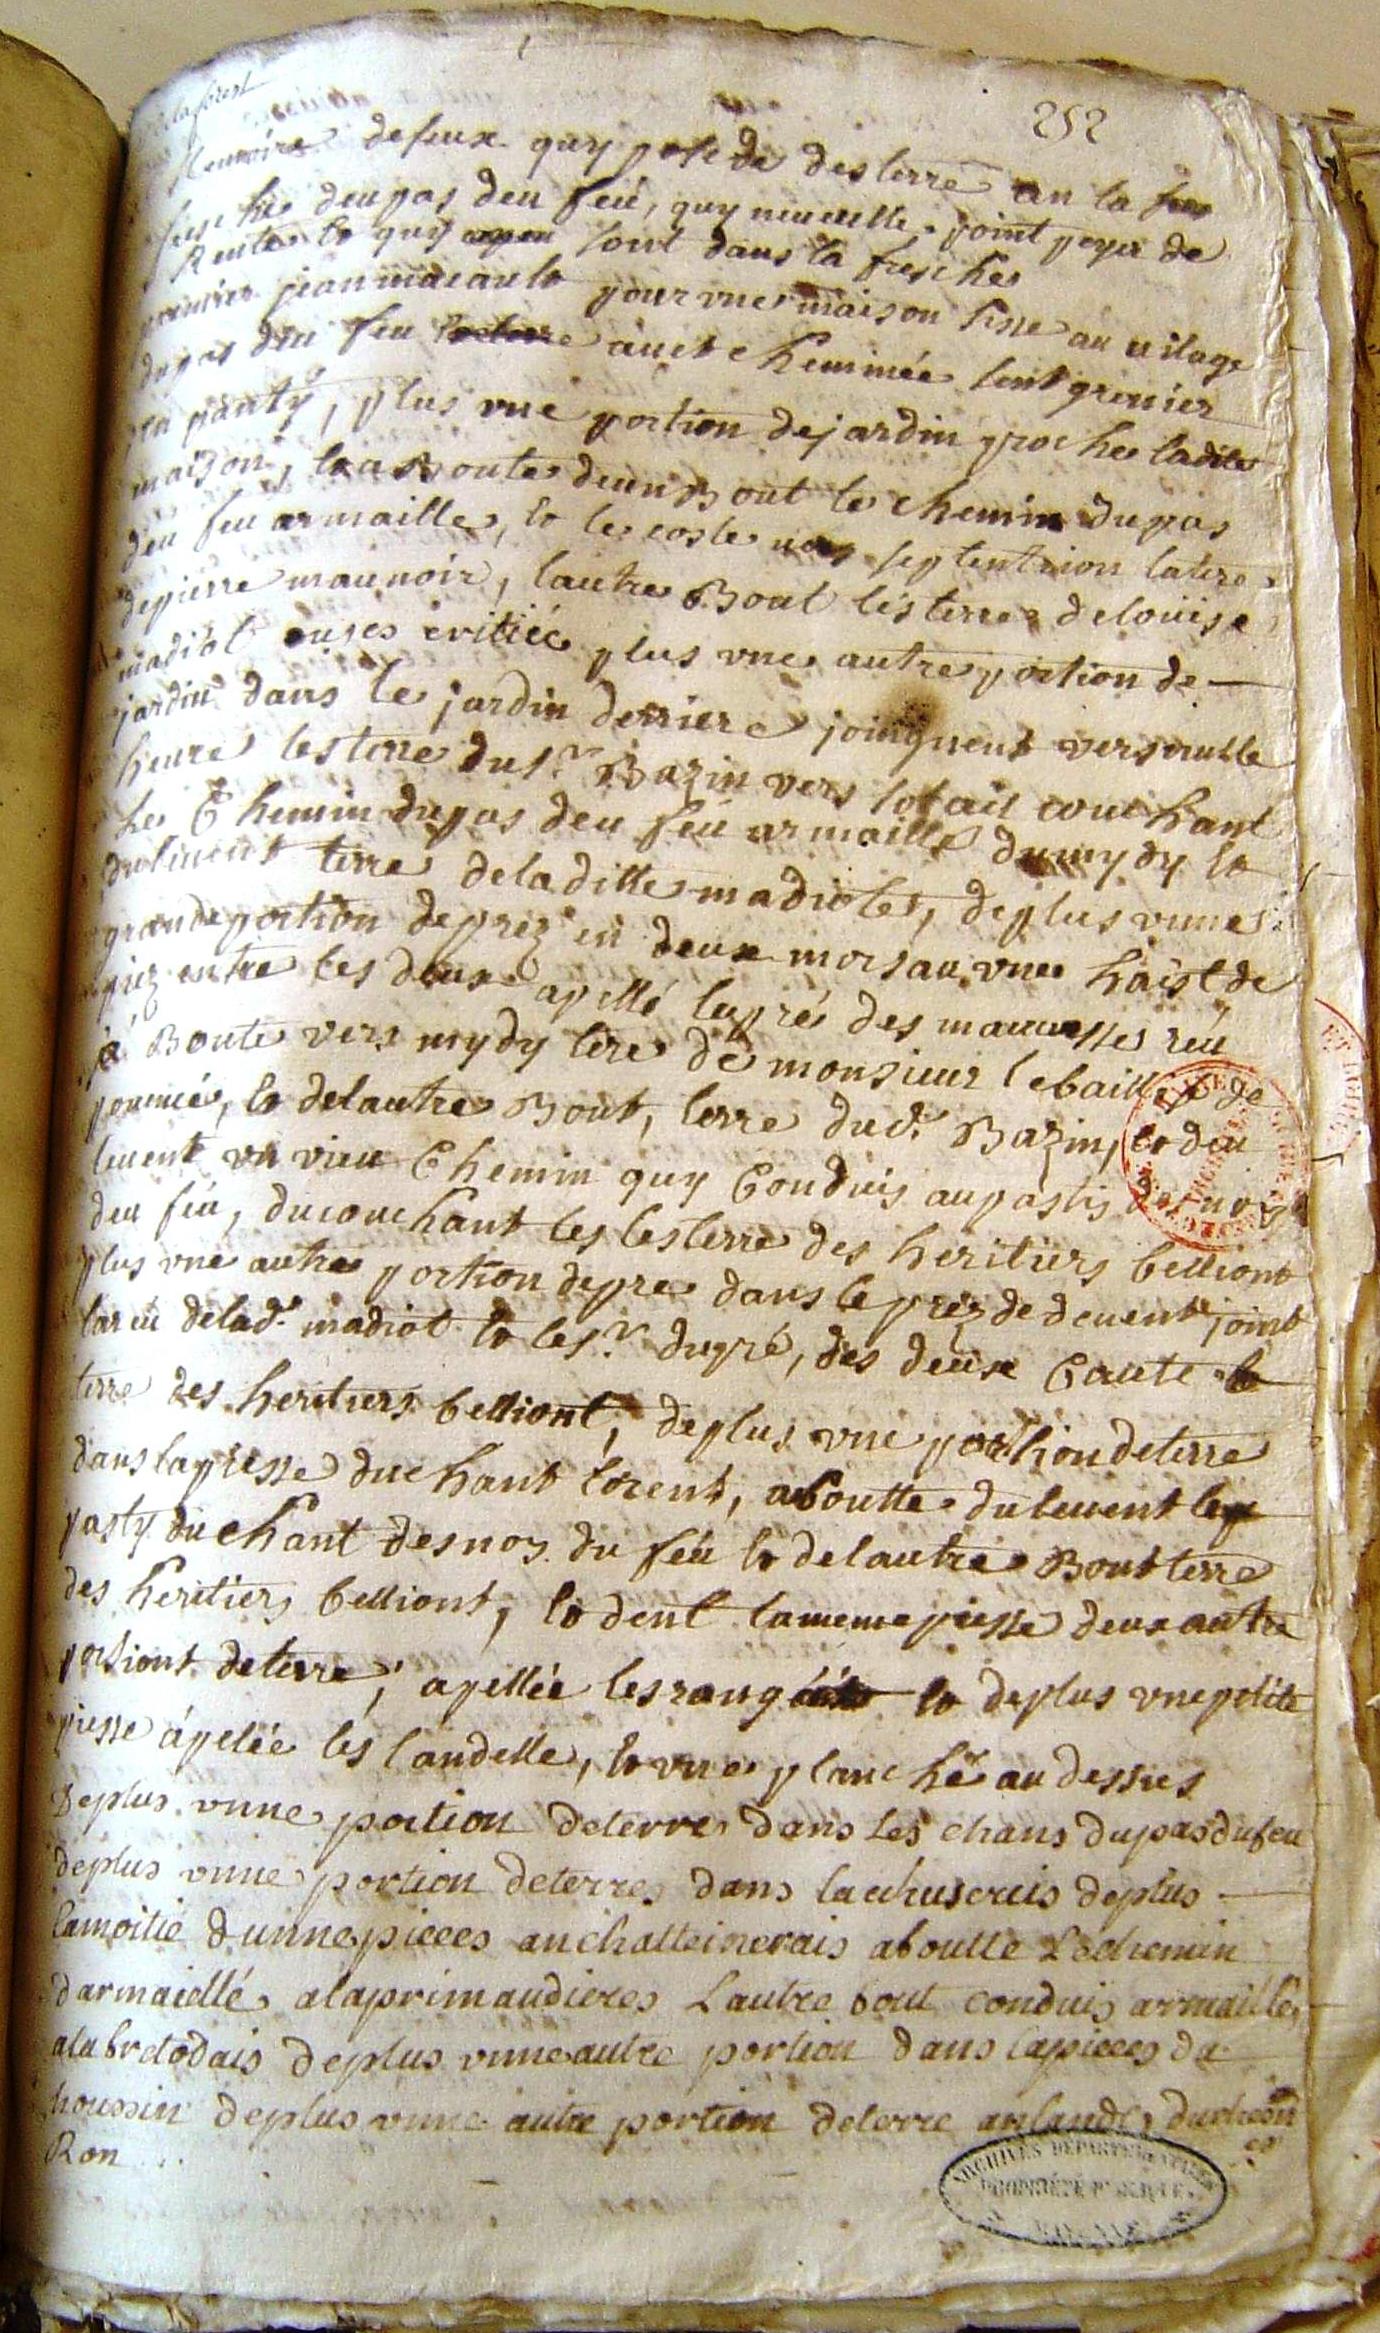 de la forest
252
Memoire deseux quy posede desterre an la
fresche deupas deu feu, quy neuveulle point peyer de
Rente et quy sont dans la fresche
premier jean macault pour vne maison sisse au uilage
dupas deu feu avet cheminée sent grenier
en panty, plus vne portion dejardin proche ladite
maison, la a Boute deun Bout le chemin dupas
deu feu armaille, et le coste septentrion latere
depierre maunoir, lautre Bout lés terre delouise
madiot ouses eritiée plus vne autre portion de
jardin dans le jardin derriere joingnent vers
heure lesterre dus.r Bazin vers solail couchant
le Chemin dupas deu feu armaille dumydy et
terre deladitte madiote, deplus vnne
grande portion deprez en deux morsau vne haist de
prez entre les deux apellé leprés des reu
a Boute vers mydy tere de monsieur lebaillif de
poumié, et delautre Bout, terre dud.r Bazin, et deu
levent vn vieu Chemin quy Conduis aupastis des noz
deu feu, ducouchant les lesterre des heritiers belliont
plus vne autre portion depre dans le prez de devent joint
lareu delad.e madiot et les.r dugré, des deux Caute le
terre des heritiers belliont, deplus vne porthion deterre
dans lapiesse duchant lorent, aboutte dulevent le
pasty du chant desnoz du feu et delautre Bout terre
des heritiers belliont, et dent lameme piesse deux autre
portiont deterre, apellée lesrang et deplus vnepetite
piesse ápelée lés landelle, et vne planche au dessus
Deplus vnne portion deterre dans Les chans dupasdufeu
deplus vnne portion deterre dans deplus
lamoitié dunnepieces anchatteinerais aboutte Léchemin
darmaiellé alaprimaudieres Lautre bout conduis armaille
alabretodais deplus vnneautre portion dans lapieces du
houssin deplus vnne autre portion deterre anlande
Ron
ARCHIVES DEPARTEMENTALES
PROPRIÉTÉ PUBLIQUE
MAYENNE